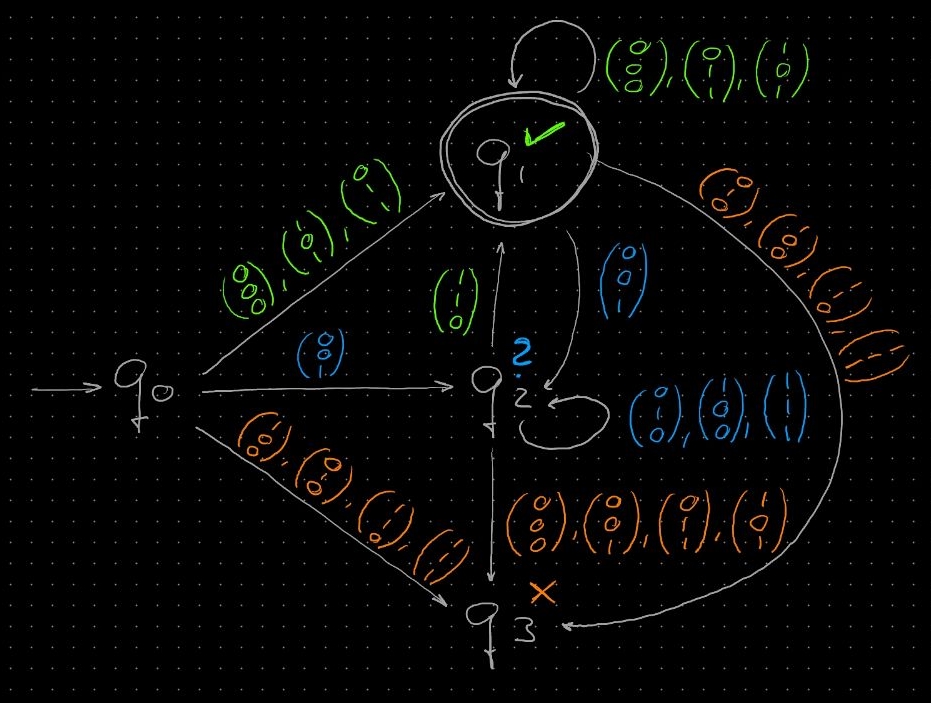 (0 0 0), (0 1 1), (1 0 1)
q1 ✓
(0 0 0), (1 0 1), (0 1 1)
(0 1 0), (1 0 0), (1 1 0), (1 1 1)
(1 1 0)
(0 0 1)
(0 0 1)
q0
q2 ?
(0 1 0), (1 0 0), (1 1 1)
(1 0 0), (0 1 0), (1 1 0), (1 1 1)
(0 0 0), (0 0 1), (0 1 1), (1 0 1)
q3 ×